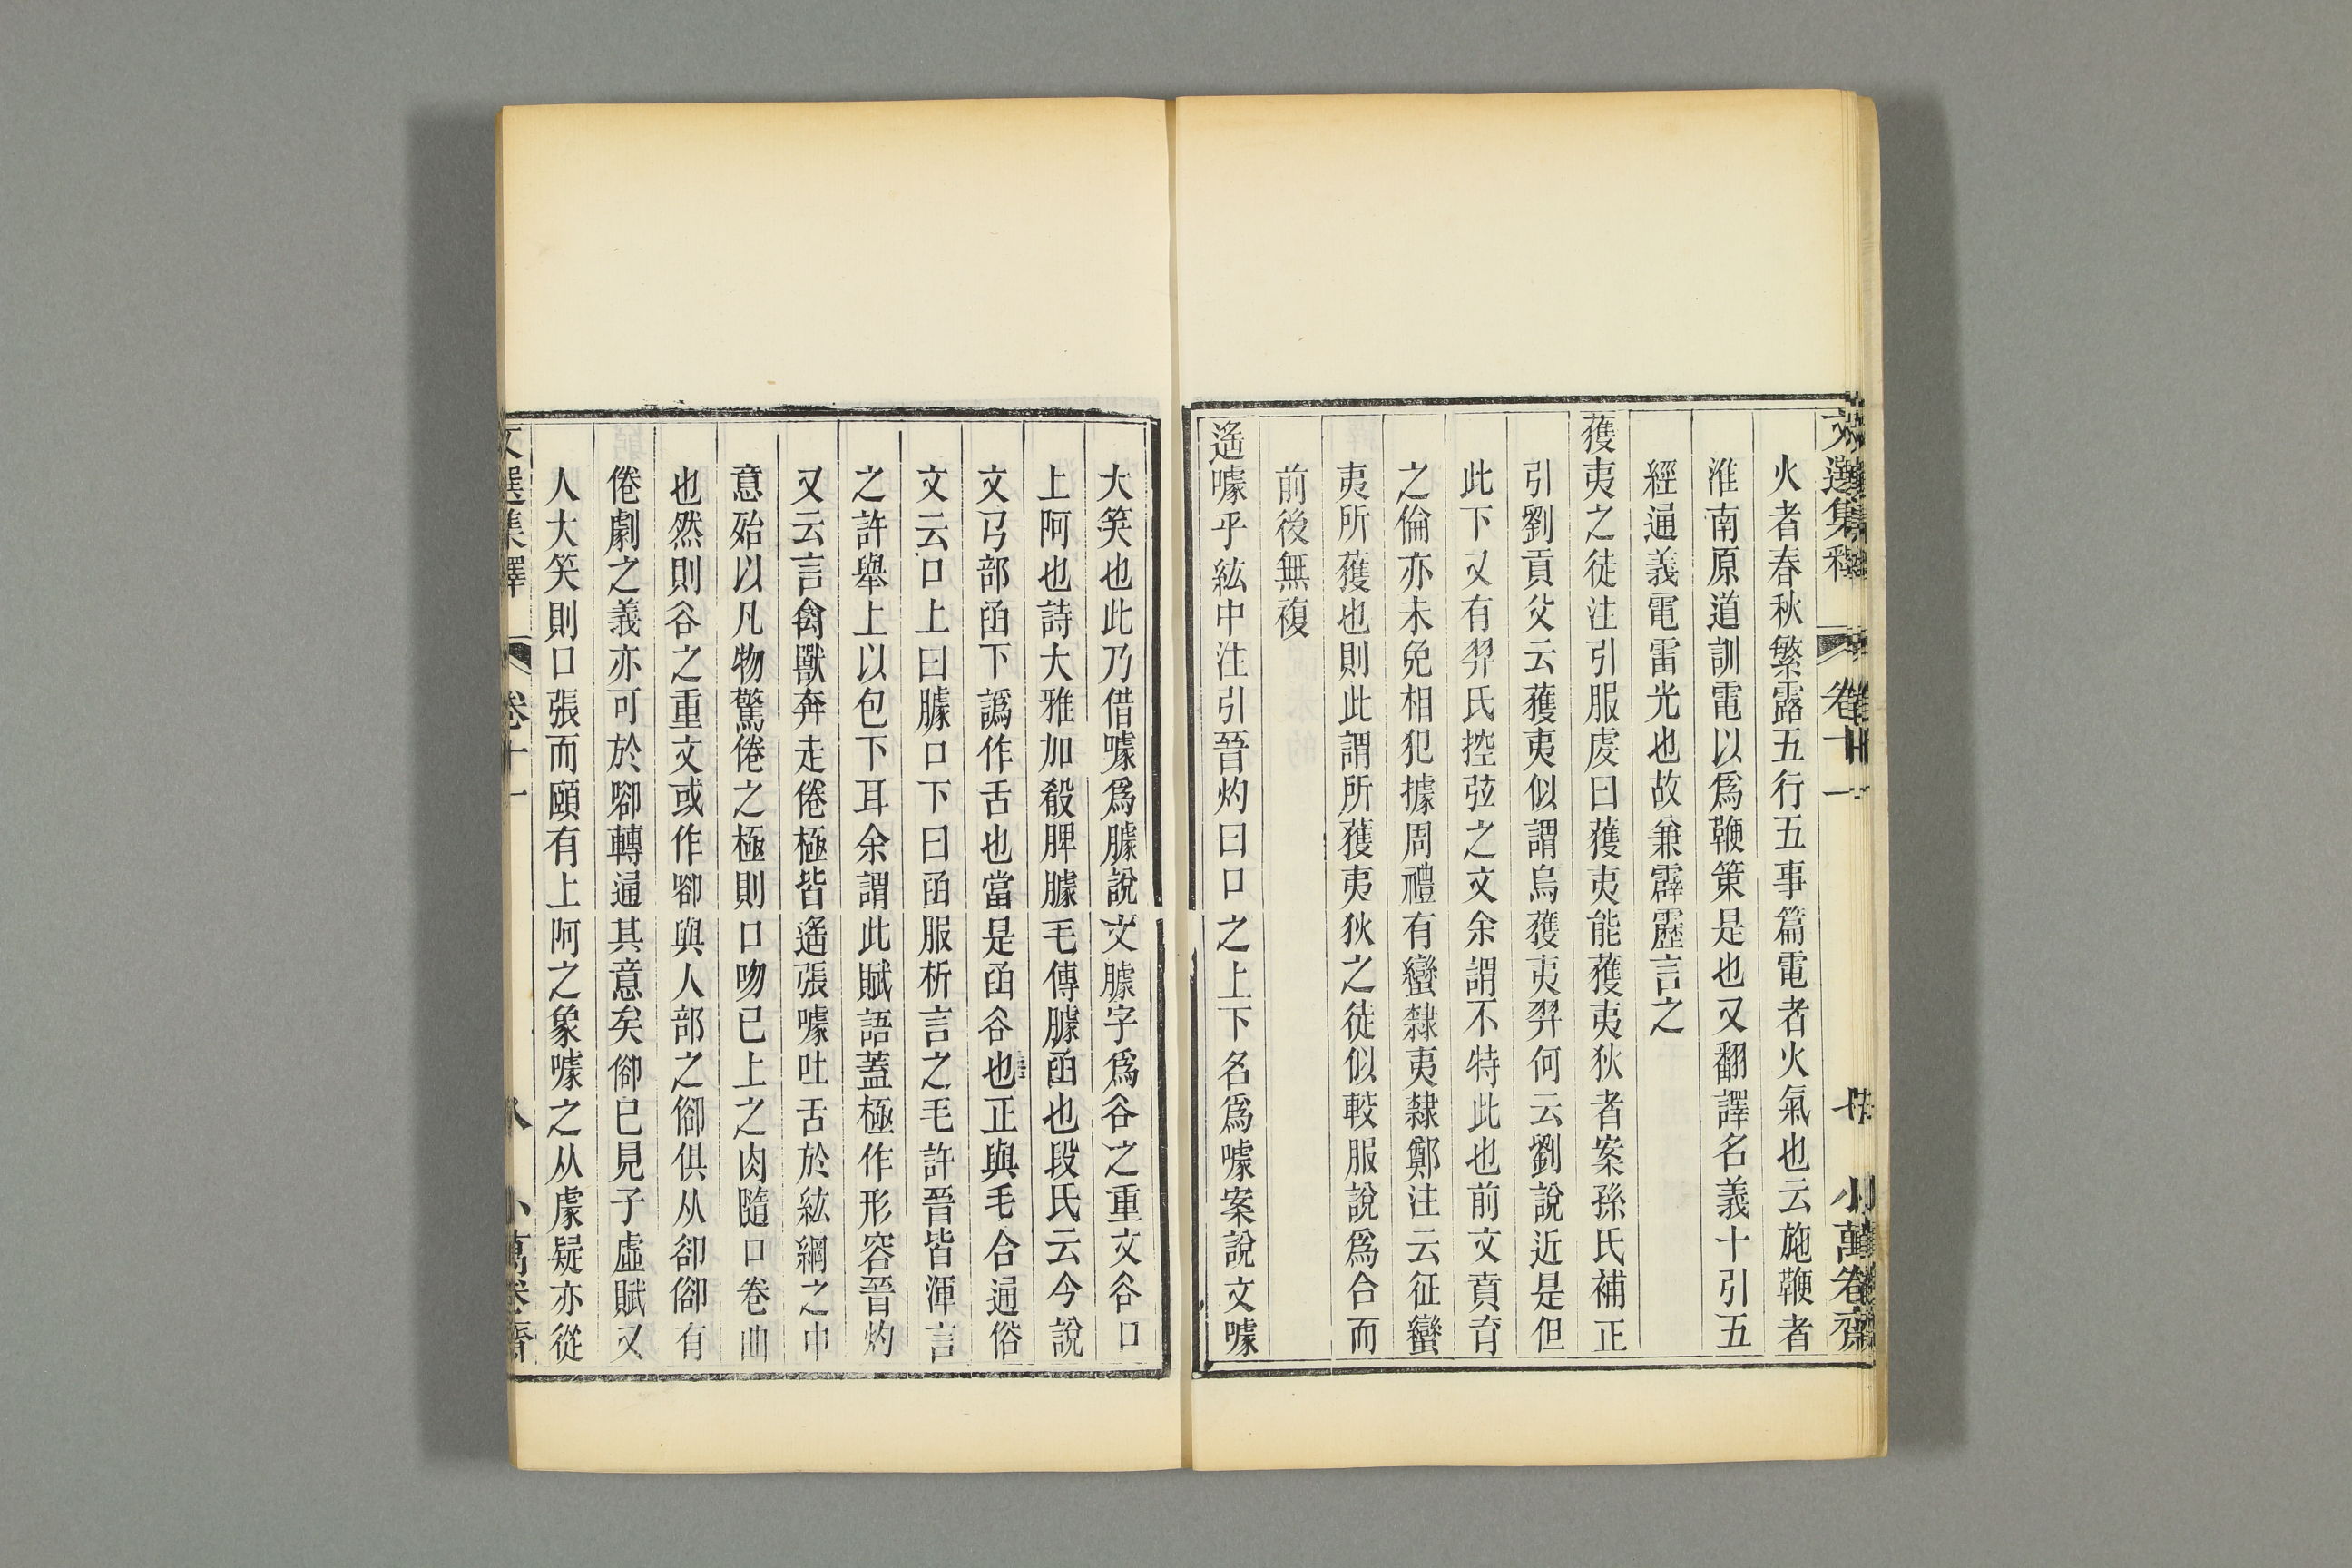 火者春秋繁露五行五事篇電者火氣也云施鞭者
淮南原道訓電以爲鞭策是也又翻譯名義十引五
經通義電雷光也故兼霹靂言之
蒦夷之徒注引服虔曰蒦夷能蒦夷狄者案孫氏補正
引劉貢父云蒦夷似謂烏蒦夷羿何云劉說近是但
此下又有羿氏控弦之文余謂不特此也前文賁育
之倫亦未免相犯據周禮有蠻隸夷隸鄭注云征蠻
夷所獲也則此謂所獲夷狄之徒似較服說爲合而
前後無複
遙噱乎紘中注引晉灼曰口之上下名爲噱案說文噱
大笑也此乃借噱爲臄說文臄字爲谷之重文谷口
上阿也詩大雅加殽脾臄毛傳臄函也段氏云今說
文㔾部函下譌作舌也當是函谷也正與毛合通俗
文云口上曰臄口下曰函服析言之毛許晉皆渾言
之許舉上以包下耳余謂此賦語蓋極作形容晉灼
又云言禽獸奔走倦極皆遙張噱吐舌於紘網之中
意殆以凡物驚倦之極則口吻已上之肉隨口卷曲
也然則谷之重文或作㕁與人部之㑉俱从卻㑉有
倦劇之義亦可於㕁轉通其意矣㑉已見子虛賦又
人大笑則口張而頤有上阿之象噱之从豦疑亦從
文選集釋
卷十一
八
小萬卷齋